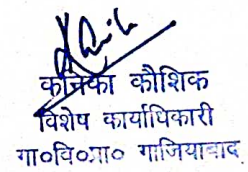 कनिका कौशिक
विशेष कार्याधिकारी
गा०वि०प्रा० गाजियाबाद